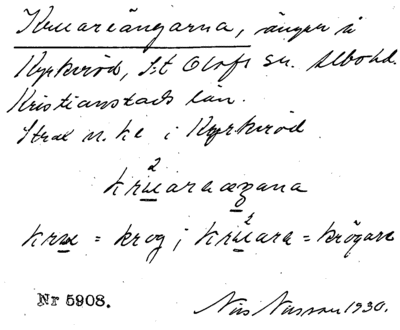 Kruareängarna, änger å
Kyrkeröd, S:t Olofs sn. Albo hd.
Kristianstads län.
Strax n. k. i Kyrkeröd
kruaraæŋana
kru = krog; kruara = krögare
Nr 5908.
Nils Nilsson 1930.